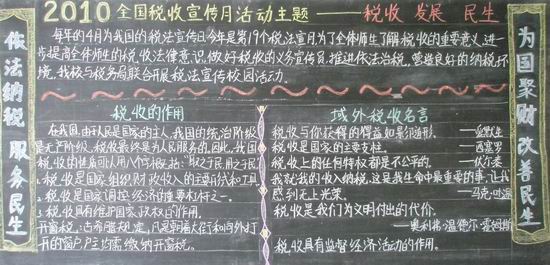 2010 全国税收宣传月活动主题——税收 发展 民生
每年的4月为我国的税法宣传月今年是第19个税法宣传月,为了全体师生了解税收的重要意义,进一
步提高全体师生的税收法律意识,做好税收的义务宣传员,推进依法治税,营造良好的纳税环
境,我校与税务局联合开展税法宣传校园活动。
依法纳税 服务民生
税收的作用
在我国,由于人民是国家的主人,我国的统治阶级
是无产阶级,税收最终是为人民服务的。因此,我国
税收的性质可以用八个字概括:取之于民,用之于民
1.税收是国家组织财政收入的主要形式和工具
2.税收是国家调控经济的重要杠杆之一。
3.税收具有维护国家政权的作用。
开窗税:古希腊规定,凡是朝着大街和向外打
开的窗户,户主均需缴纳开窗税。
域外税收名言
税收与你获得的利益如影随形。
税收是国家的主要支柱。——西塞罗
税收上的任何特权都是不公平的。——伏尔泰
我就我的收入纳税,这是我生命中最重要的事,让我
感到无上光荣。——马克·吐温
税收是我们为文明付出的代价。
——奥利弗·温德尔·霍姆斯
税收具有监督经济活动的作用。
为国聚财 改善民生